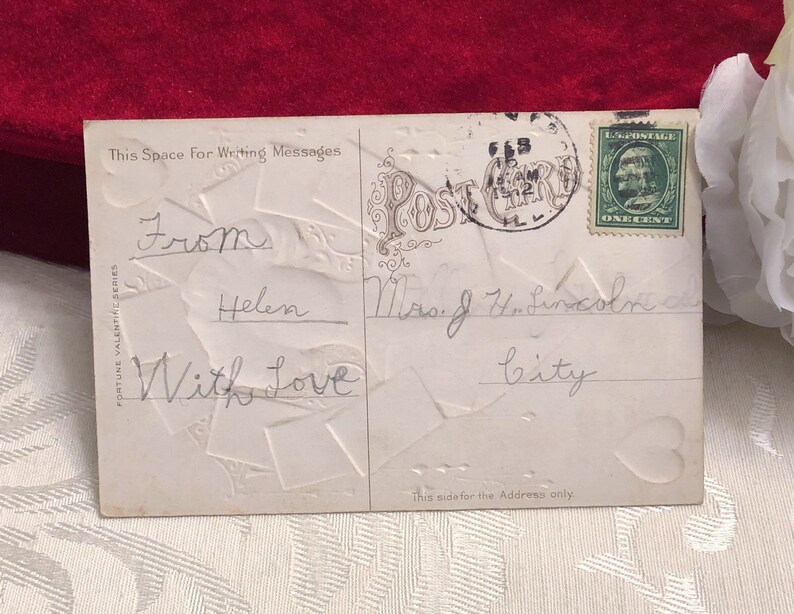 This Space For Writing Messages
From
Helen
With Love
FORTUNE VALENTINE SERIES
POST CARD
FEB
AM
ILL.
U.S. POSTAGE
ONE CENT
Mrs. J H. Lincoln
City
This side for the Address only.